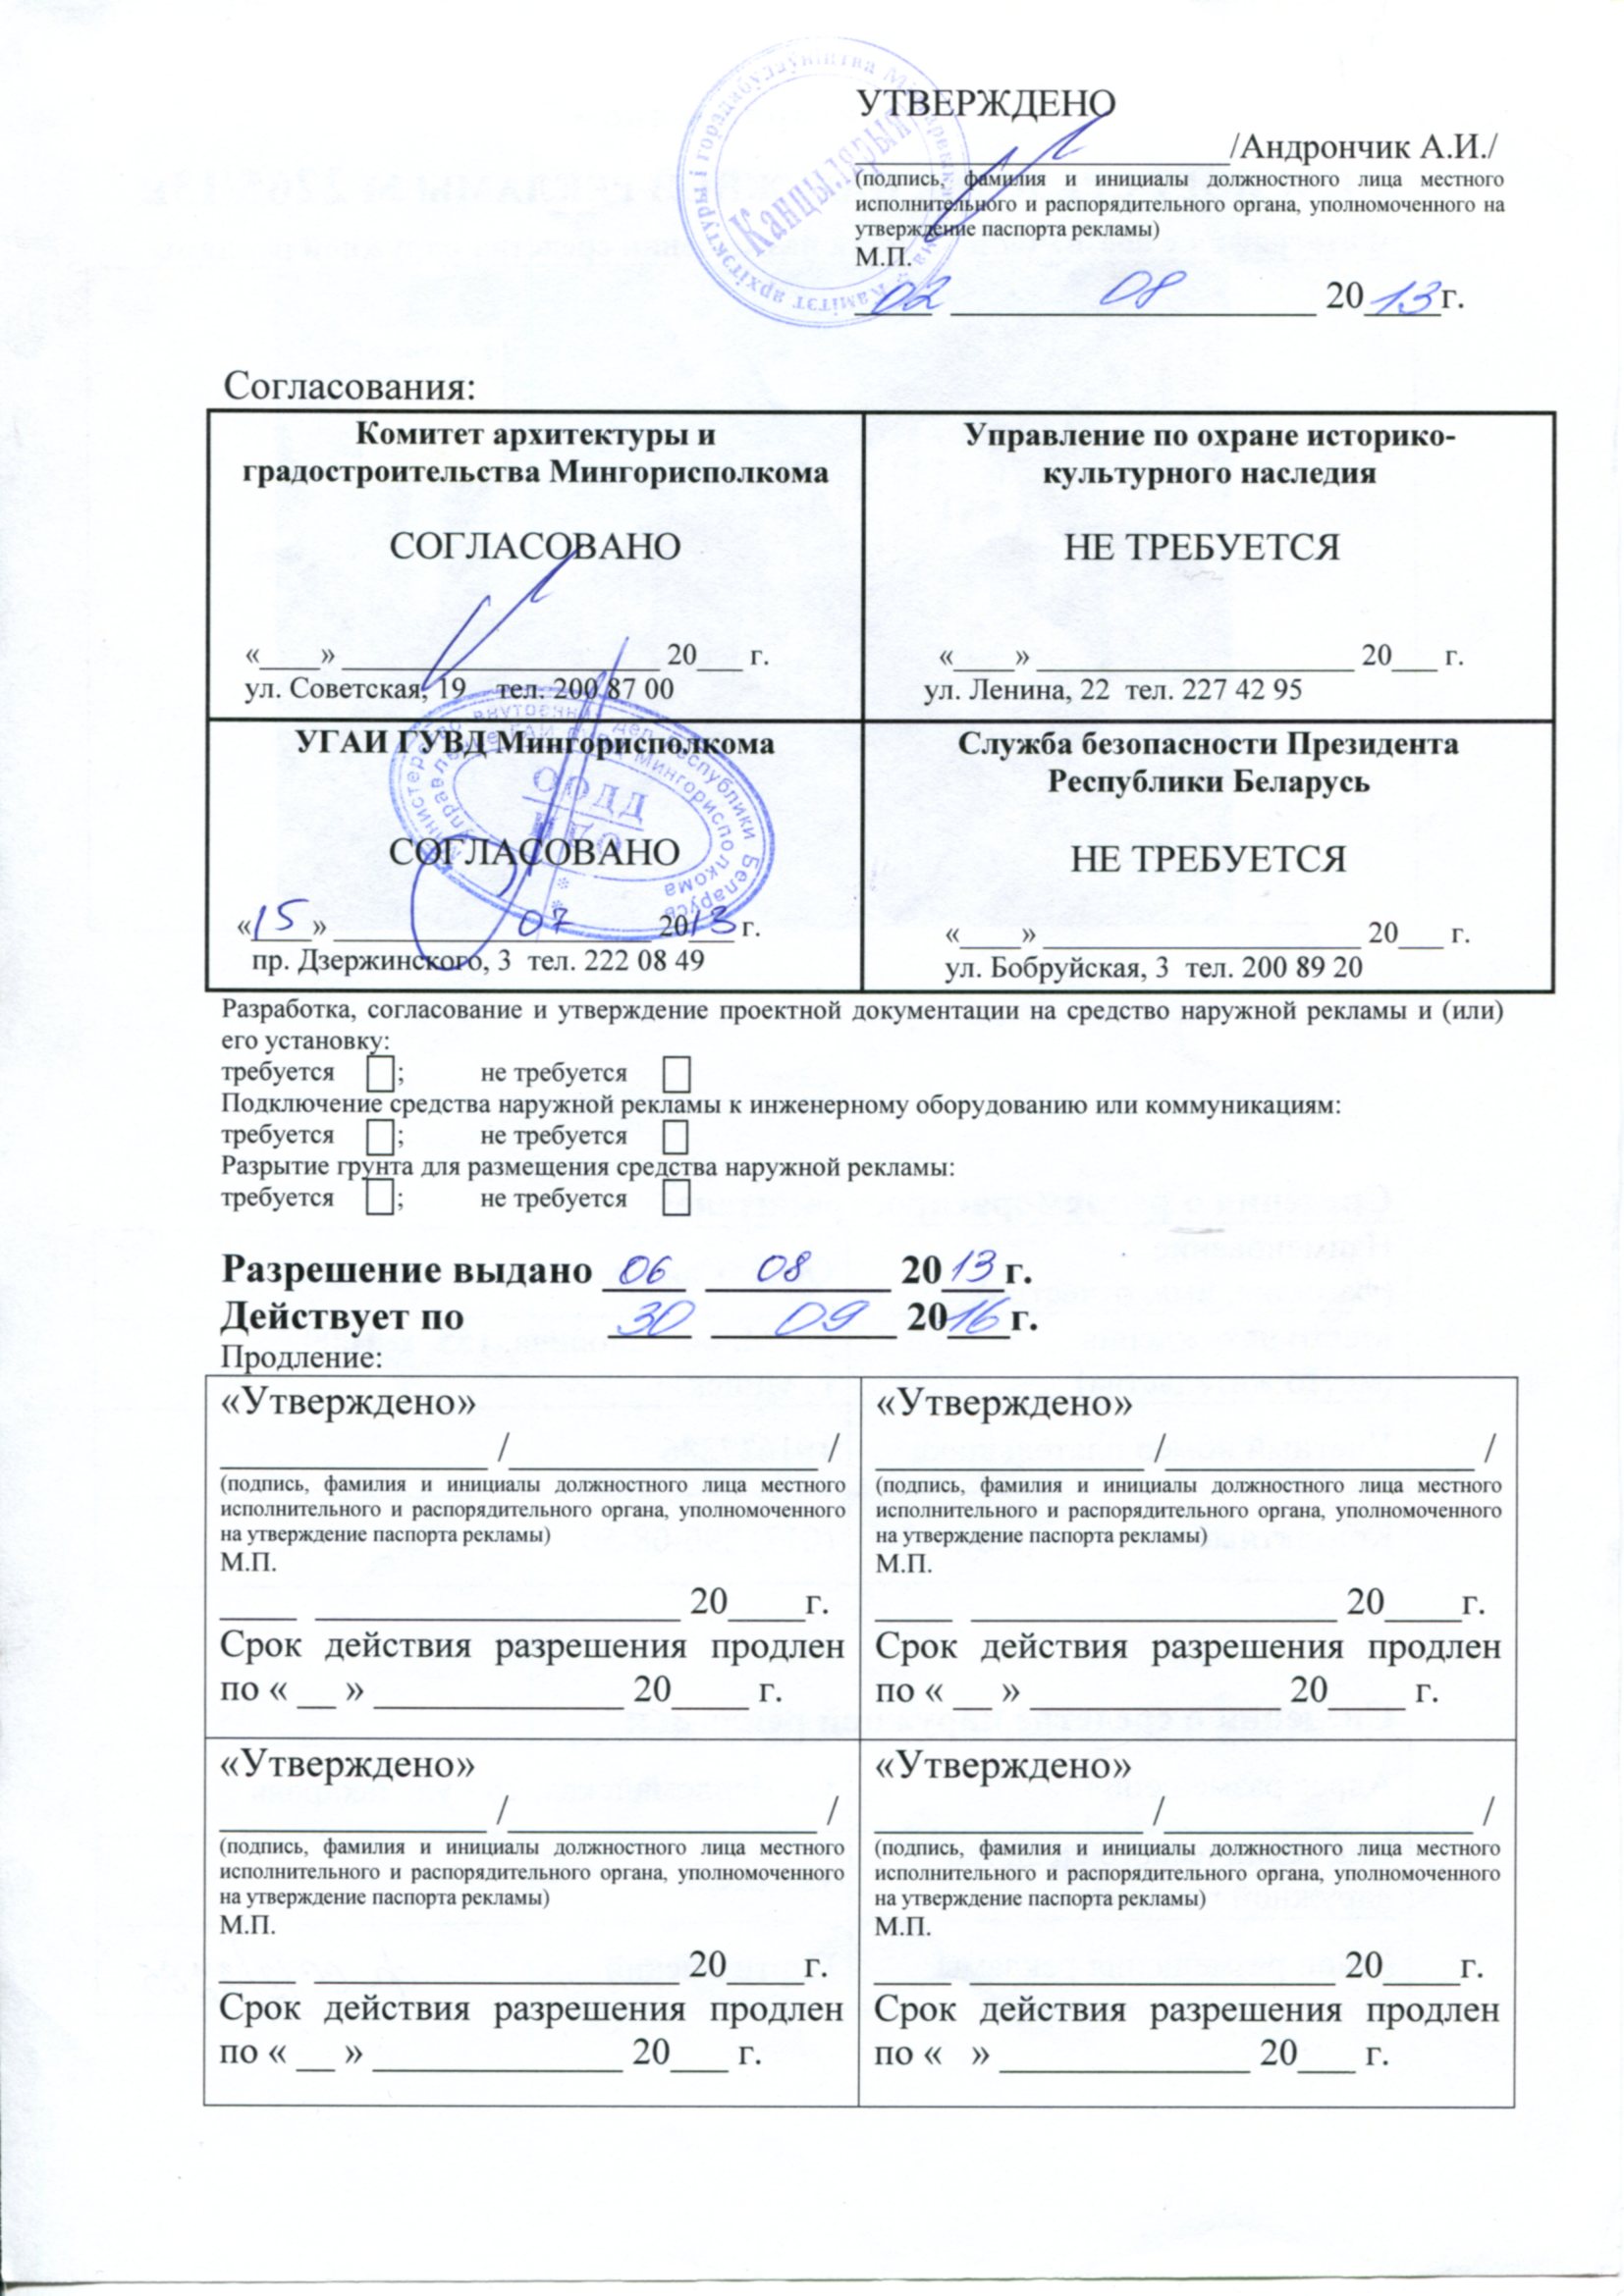 УТВЕРЖДЕНО
____________________/Андрончик А.И./
(подпись, фамилия и инициалы должностного лица местного
исполнительного и распорядительного органа, уполномоченного на
утверждение паспорта рекламы)
М.П.
02 08 2013г.
Канцылярыя
Согласования:
Комитет архитектуры и
градостроительства Мингорисполкома
СОГЛАСОВАНО
«____» _____________________ 20___ г.
ул. Советская, 19 тел. 200 87 00
Управление по охране историко-
культурного наследия
НЕ ТРЕБУЕТСЯ
«____» _____________________ 20___ г.
ул. Ленина, 22 тел. 227 42 95
УГАИ ГУВД Мингорисполкома
СОГЛАСОВАНО
«15» 07 2013 г.
пр. Дзержинского, 3 тел. 222 08 49
Министерство внутренних дел Республики Беларусь
Управление ГАИ ГУВД Мингорисполкома
ООДД
Служба безопасности Президента
Республики Беларусь
НЕ ТРЕБУЕТСЯ
«____» _____________________ 20___ г.
ул. Бобруйская, 3 тел. 200 89 20
Разработка, согласование и утверждение проектной документации на средство наружной рекламы и (или)
его установку:
требуется ; не требуется
Подключение средства наружной рекламы к инженерному оборудованию или коммуникациям:
требуется ; не требуется
Разрытие грунта для размещения средства наружной рекламы:
требуется ; не требуется
Разрешение выдано 06 08 2013г.
Действует по 30 09 2016г.
Продление:
«Утверждено»
______________ /________________ /
(подпись, фамилия и инициалы должностного лица местного
исполнительного и распорядительного органа, уполномоченного
на утверждение паспорта рекламы)
М.П.
____ ___________________ 20____г.
Срок действия разрешения продлен
по « __ » _____________ 20____ г.
«Утверждено»
______________ /________________ /
(подпись, фамилия и инициалы должностного лица местного
исполнительного и распорядительного органа, уполномоченного
на утверждение паспорта рекламы)
М.П.
____ ___________________ 20____г.
Срок действия разрешения продлен
по « __ » _____________ 20____ г.
«Утверждено»
______________ /________________ /
(подпись, фамилия и инициалы должностного лица местного
исполнительного и распорядительного органа, уполномоченного
на утверждение паспорта рекламы)
М.П.
____ ___________________ 20____г.
Срок действия разрешения продлен
по « __ » _____________ 20___ г.
«Утверждено»
______________ /________________ /
(подпись, фамилия и инициалы должностного лица местного
исполнительного и распорядительного органа, уполномоченного
на утверждение паспорта рекламы)
М.П.
____ ___________________ 20____г.
Срок действия разрешения продлен
по « » _____________ 20___ г.